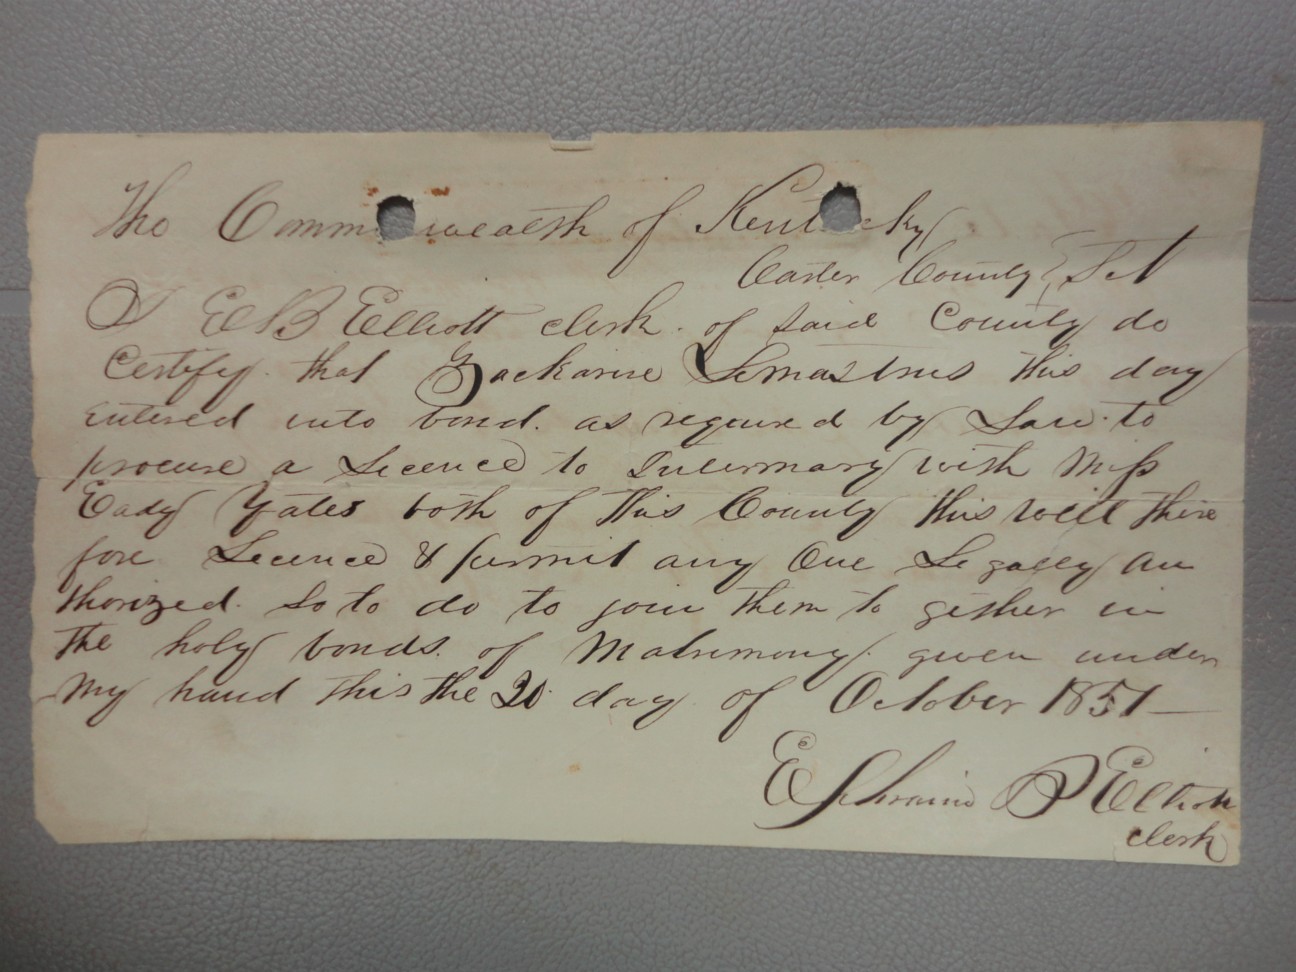 The Commonwealth of Kentucky
Carter County Sct
I E B Elliott clerk of said County do
Certify that Zackarise Lemastrus this day
entered into bond as requred by Law to
procure a Licence to Intermary with Miss
Eady Yates both of this County this will there
fore Licence & permit any One Legally au
thorized so to do to join them to gether in
the holy bonds of Matrimony given under
my hand this the 20 day of October 1851
Ephraim B Elliott
clerk